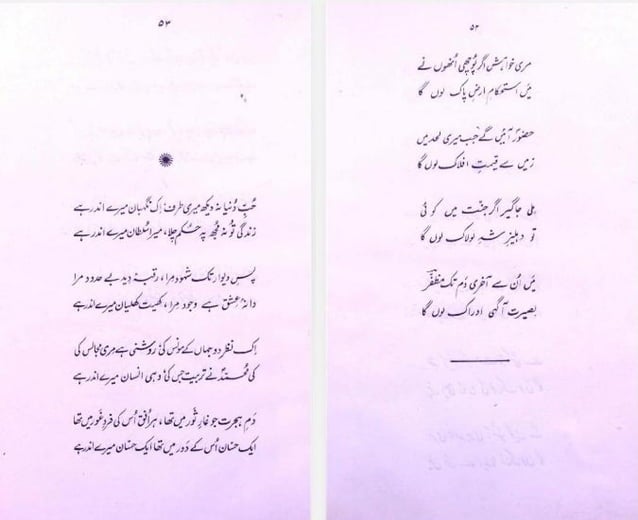 ۵۲
مری خواہش اگر پُوچھی اُنھوں نے
مَیں استحکامِ ارضِ پاک لوں گا
حضورؐ آئیں گے جب میری لحد میں
زمیں سے قیمتِ افلاک لوں گا
ملی جاگیر اگر جنّت میں کوئی
تو دہلیزِ شہِ لولاک لوں گا
مَیں اُن سے آخری دَم تک مظفّر
بصیرت آگہی ادراک لوں گا
۵۳
حُبِّ دُنیا نہ دیکھ میری طرف اِک نگہبان میرے اندر ہے
زندگی تُو نہ مُجھ پہ حُکم چلا، میرا سُلطان میرے اندر ہے
پسِ دیوار تک شہود مِرا، رقبۂ دِید بے حدود مرا
دانۂ عشق ہے وجود مِرا، کھیت کھلیان میرے اندر ہے
اِک نظر دو جہاں کے مونس کی روشنی ہے مری مجالس کی
کی محمدؐ نے تربیت جس کی وہی انسان میرے اندر ہے
دَمِ ہجرت جو غارِ ثَور میں تھا، ہر اُفق اُس کی فردِ غور میں تھا
ایک حسّان اُس کے دَور میں تھا ایک حسّان میرے اندر ہے